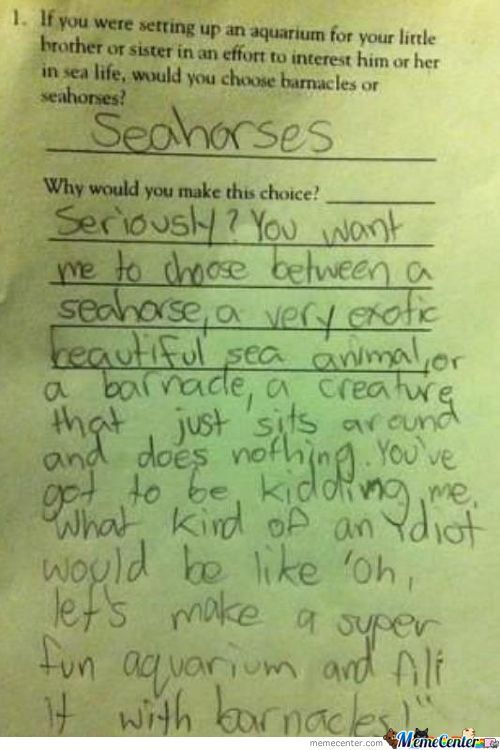 1. If you were setting up an aquarium for your little
brother or sister in an effort to interest him or her
in sea life, would you choose barnacles or
seahorses?
Seahorses
Why would you make this choice?
Seriously? You want
me to choose between a
seahorse, a very exotic
beautiful sea animal, or
a barnacle, a creature
that just sits around
and does nothing. You've
got to be kidding me.
What kind of an idiot
would be like 'oh,
let's make a super
fun aquarium and fill
it with barnacles!"
memecenter.com MemeCenter